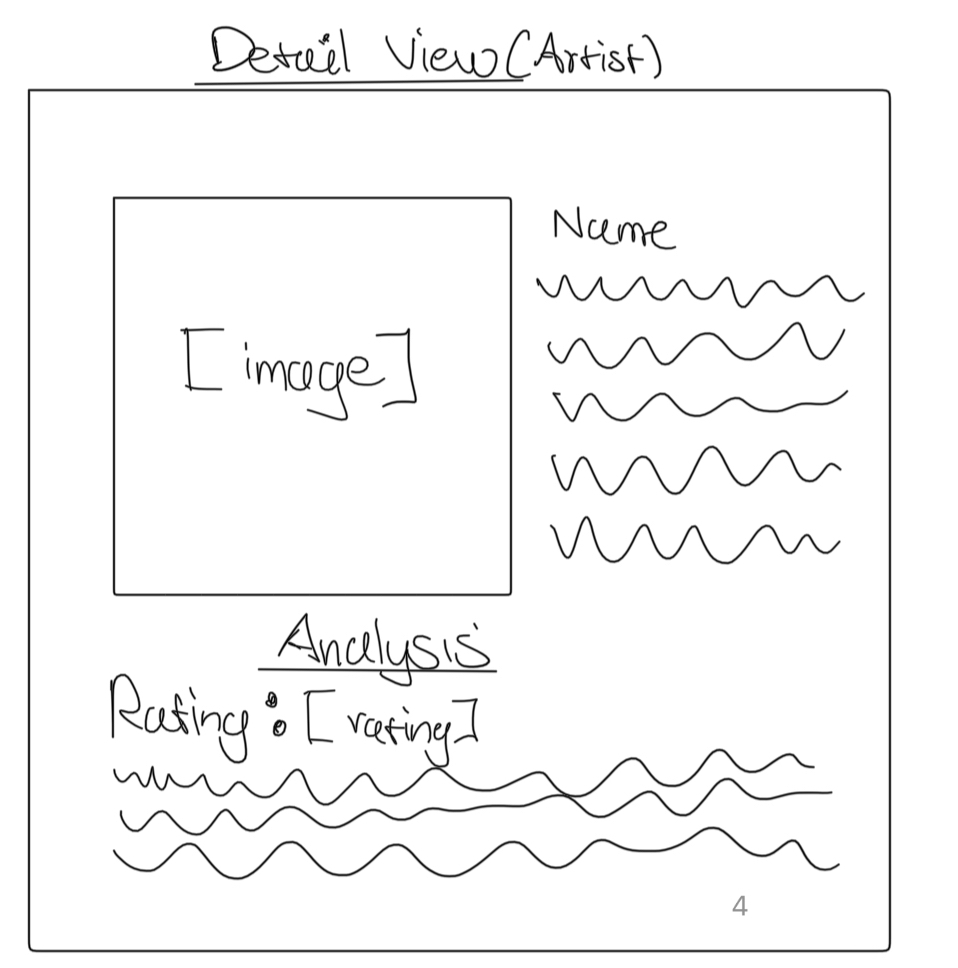 Detail View (Artist)
Name
[image]
Analysis
Rating: [rating]
4